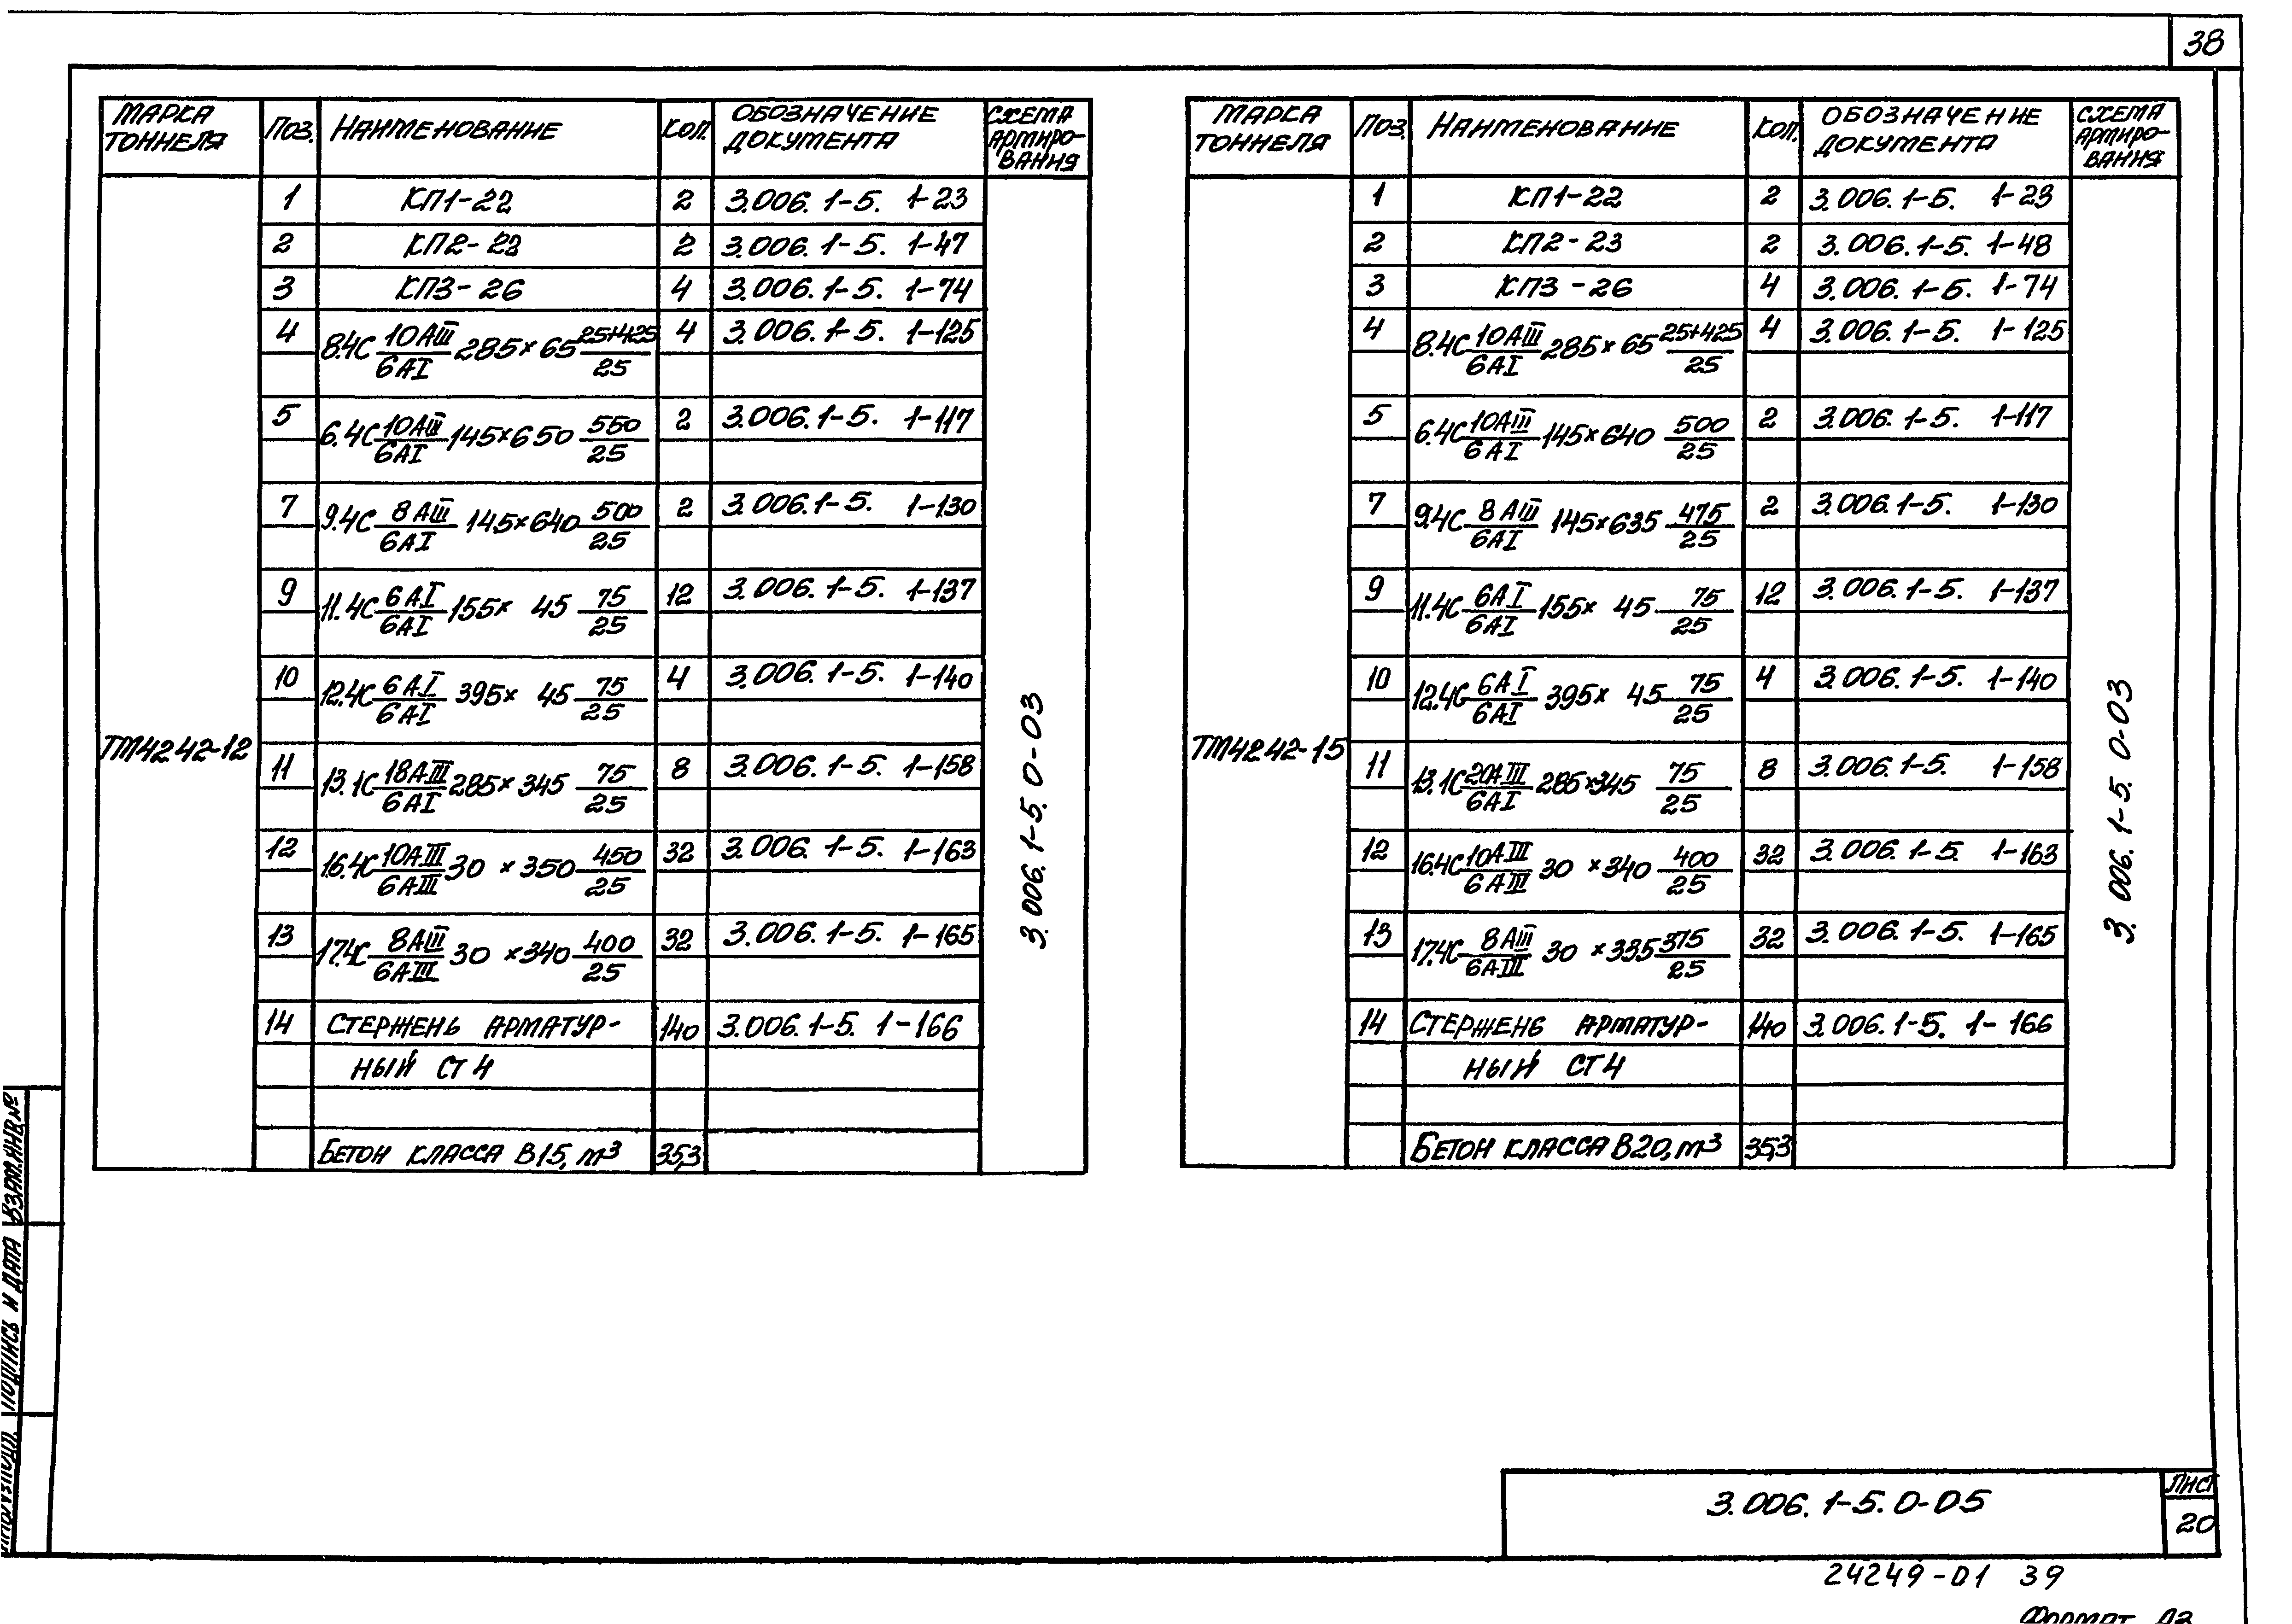 38
МАРКА ТОННЕЛЯ | ПОЗ. | НАИМЕНОВАНИЕ | КОЛ. | ОБОЗНАЧЕНИЕ ДОКУМЕНТА | СХЕМА АРМИРО-ВАНИЯ
ТМ4242-12
1 | КП1-22 | 2 | 3.006.1-5. 1-23
2 | КП2-22 | 2 | 3.006.1-5. 1-47
3 | КП3-26 | 4 | 3.006.1-5. 1-74
4 | 8.4С 10АIII/6АI 285×65 25+425/25 | 4 | 3.006.1-5. 1-125
5 | 6.4С 10АIII/6АI 145×650 550/25 | 2 | 3.006.1-5. 1-117
7 | 9.4С 8АIII/6АI 145×640 500/25 | 2 | 3.006.1-5. 1-130
9 | 11.4С 6АI/6АI 155× 45 75/25 | 12 | 3.006.1-5. 1-137
10 | 12.4С 6АI/6АI 395× 45 75/25 | 4 | 3.006.1-5. 1-140
11 | 13.1С 18АIII/6АI 285×345 75/25 | 8 | 3.006.1-5. 1-158
12 | 16.4С 10АIII/6АIII 30 ×350 450/25 | 32 | 3.006.1-5. 1-163
13 | 17.4С 8АIII/6АIII 30 ×340 400/25 | 32 | 3.006.1-5. 1-165
14 | СТЕРЖЕНЬ АРМАТУР- | 140 | 3.006.1-5. 1-166
НЫЙ СТ4
БЕТОН КЛАССА В15, м³ | 35,3
3.006.1-5.0-03
МАРКА ТОННЕЛЯ | ПОЗ. | НАИМЕНОВАНИЕ | КОЛ. | ОБОЗНАЧЕНИЕ ДОКУМЕНТА | СХЕМА АРМИРО-ВАНИЯ
ТМ4242-15
1 | КП1-22 | 2 | 3.006.1-5. 1-23
2 | КП2-23 | 2 | 3.006.1-5. 1-48
3 | КП3-26 | 4 | 3.006.1-5. 1-74
4 | 8.4С 10АIII/6АI 285×65 25+425/25 | 4 | 3.006.1-5. 1-125
5 | 6.4С 10АIII/6АI 145×640 500/25 | 2 | 3.006.1-5. 1-117
7 | 9.4С 8АIII/6АI 145×635 475/25 | 2 | 3.006.1-5. 1-130
9 | 11.4С 6АI/6АI 155× 45 75/25 | 12 | 3.006.1-5. 1-137
10 | 12.4С 6АI/6АI 395× 45 75/25 | 4 | 3.006.1-5. 1-140
11 | 13.1С 20АIII/6АI 285×345 75/25 | 8 | 3.006.1-5. 1-158
12 | 16.4С 10АIII/6АIII 30 ×340 400/25 | 32 | 3.006.1-5. 1-163
13 | 17.4С 8АIII/6АIII 30 ×335 375/25 | 32 | 3.006.1-5. 1-165
14 | СТЕРЖЕНЬ АРМАТУР- | 140 | 3.006.1-5. 1-166
НЫЙ СТ4
БЕТОН КЛАССА В20, м³ | 35,3
3.006.1-5.0-03
ВЗАМ.ИНВ.№
ПОДПИСЬ И ДАТА
3.006.1-5.0-05
ЛИСТ
20
24249-01 39
ФОРМАТ А3